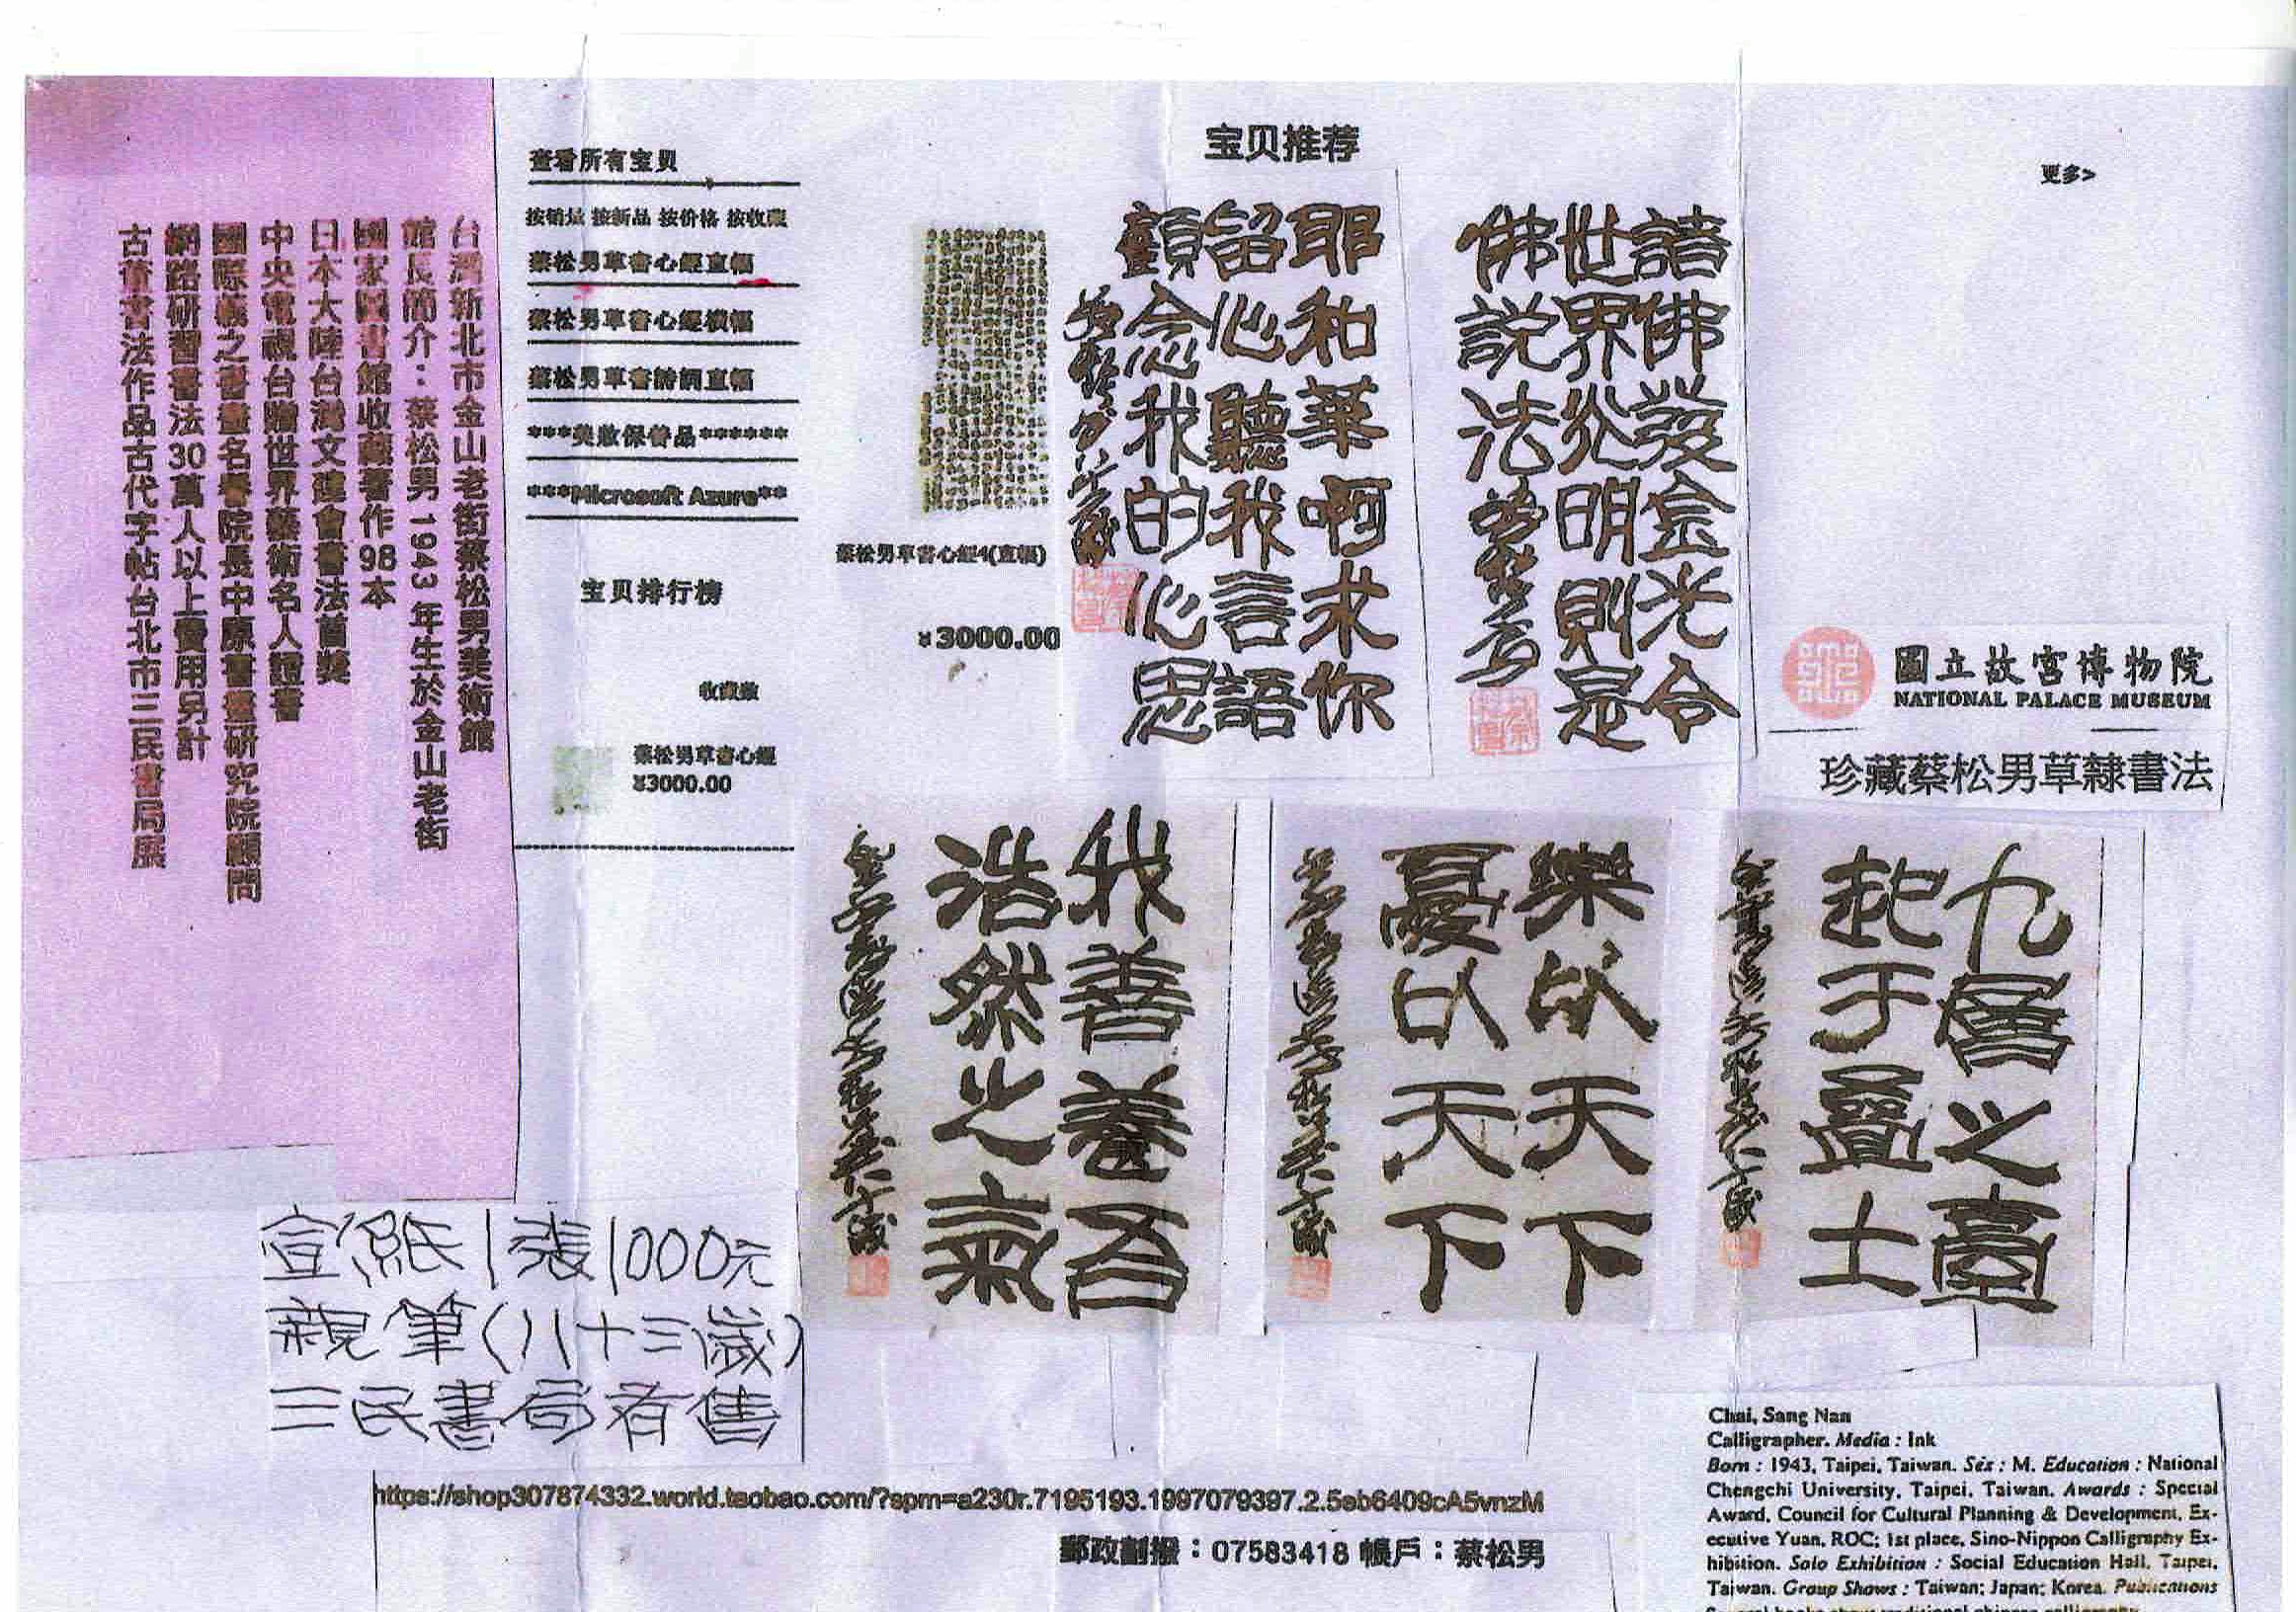 台灣新北市金山老街蔡松男美術館
館長簡介：蔡松男1943年生於金山老街
國家圖書館收藏著作98本
日本大陸台灣文建會書法首獎
中央電視台贈世界藝術名人證書
國際羲之書畫名譽院長中原書畫研究院顧問
網路研習書法30萬人以上費用另計
古董書法作品古代字帖台北市三民書局展
查看所有宝贝
按销量 按新品 按价格 按收藏
蔡松男草書心經直幅
蔡松男草書心經橫幅
蔡松男草書詩詞直幅
***美妝保養品******
***Microsoft Azure**
宝贝排行榜
收藏数
蔡松男草書心經
¥3000.00
宝贝推荐
更多>
蔡松男草書心經4(直幅)
¥3000.00
耶和華啊求你
留心聽我言語
顧念我的心思
諸佛發金光令
世界光明則是
佛說法
國立故宮博物院
NATIONAL PALACE MUSEUM
珍藏蔡松男草隸書法
我善養吾
浩然之氣
樂以天下
憂以天下
九層之臺
起于壘土
宣紙1張1000元
親筆(八十三歲)
三民書局有售
https://shop307874332.world.taobao.com/?spm=a230r.7195193.1997079397.2.5eb6409cA5vnzM
郵政劃撥：07583418 帳戶：蔡松男
Chai, Sang Nan
Calligrapher. Media : Ink
Born : 1943, Taipei, Taiwan. Sex : M. Education : National
Chengchi University, Taipei, Taiwan. Awards : Special
Award, Council for Cultural Planning & Development, Ex-
ecutive Yuan, ROC; 1st place, Sino-Nippon Calligraphy Ex-
hibition. Solo Exhibition : Social Education Hall, Taipei,
Taiwan. Group Shows : Taiwan; Japan; Korea. Publications